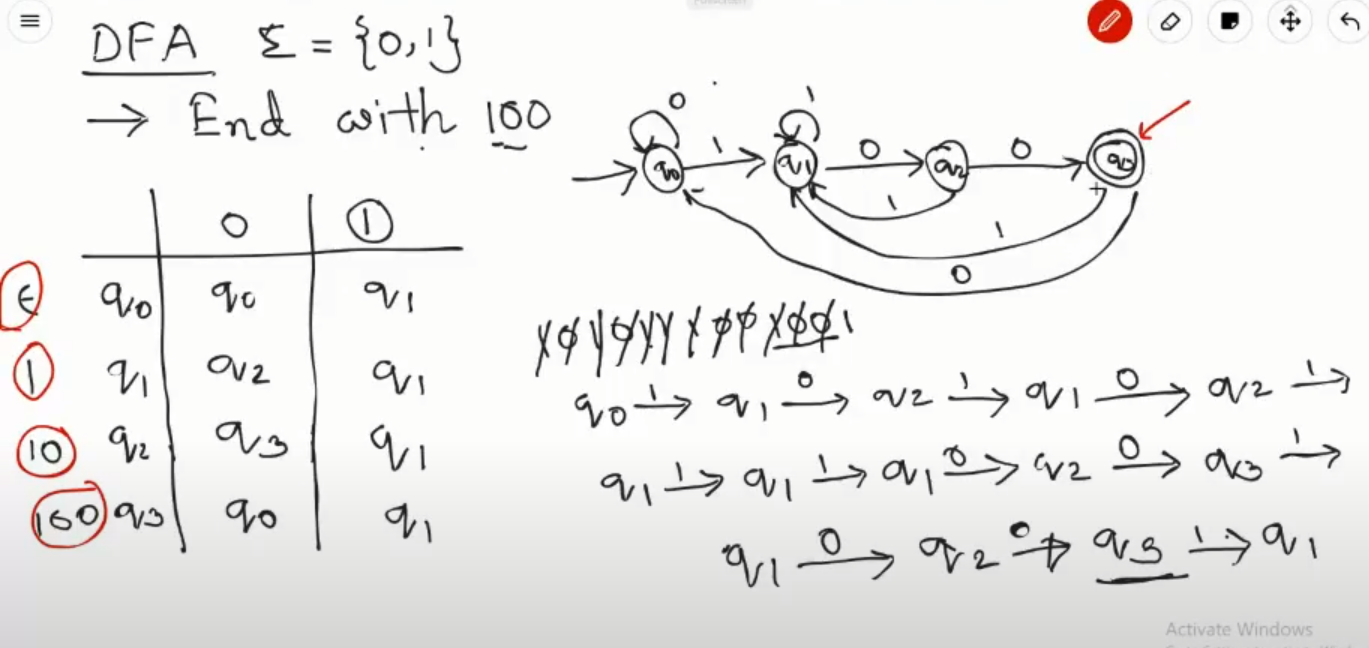 DFA Σ = {0,1}
→ End with 100
0 1
ϵ q0 q0 q1
1 q1 q2 q1
10 q2 q3 q1
100 q3 q0 q1
0 1
→ q0 1 q1 0 q2 0 q3
1
1
0
q0 1→ q1 0→ q2 1→ q1 0→ q2 1→
q1 1→ q1 1→ q1 0→ q2 0→ q3 1→
q1 0→ q2 0→ q3 1→ q1
Activate Windows